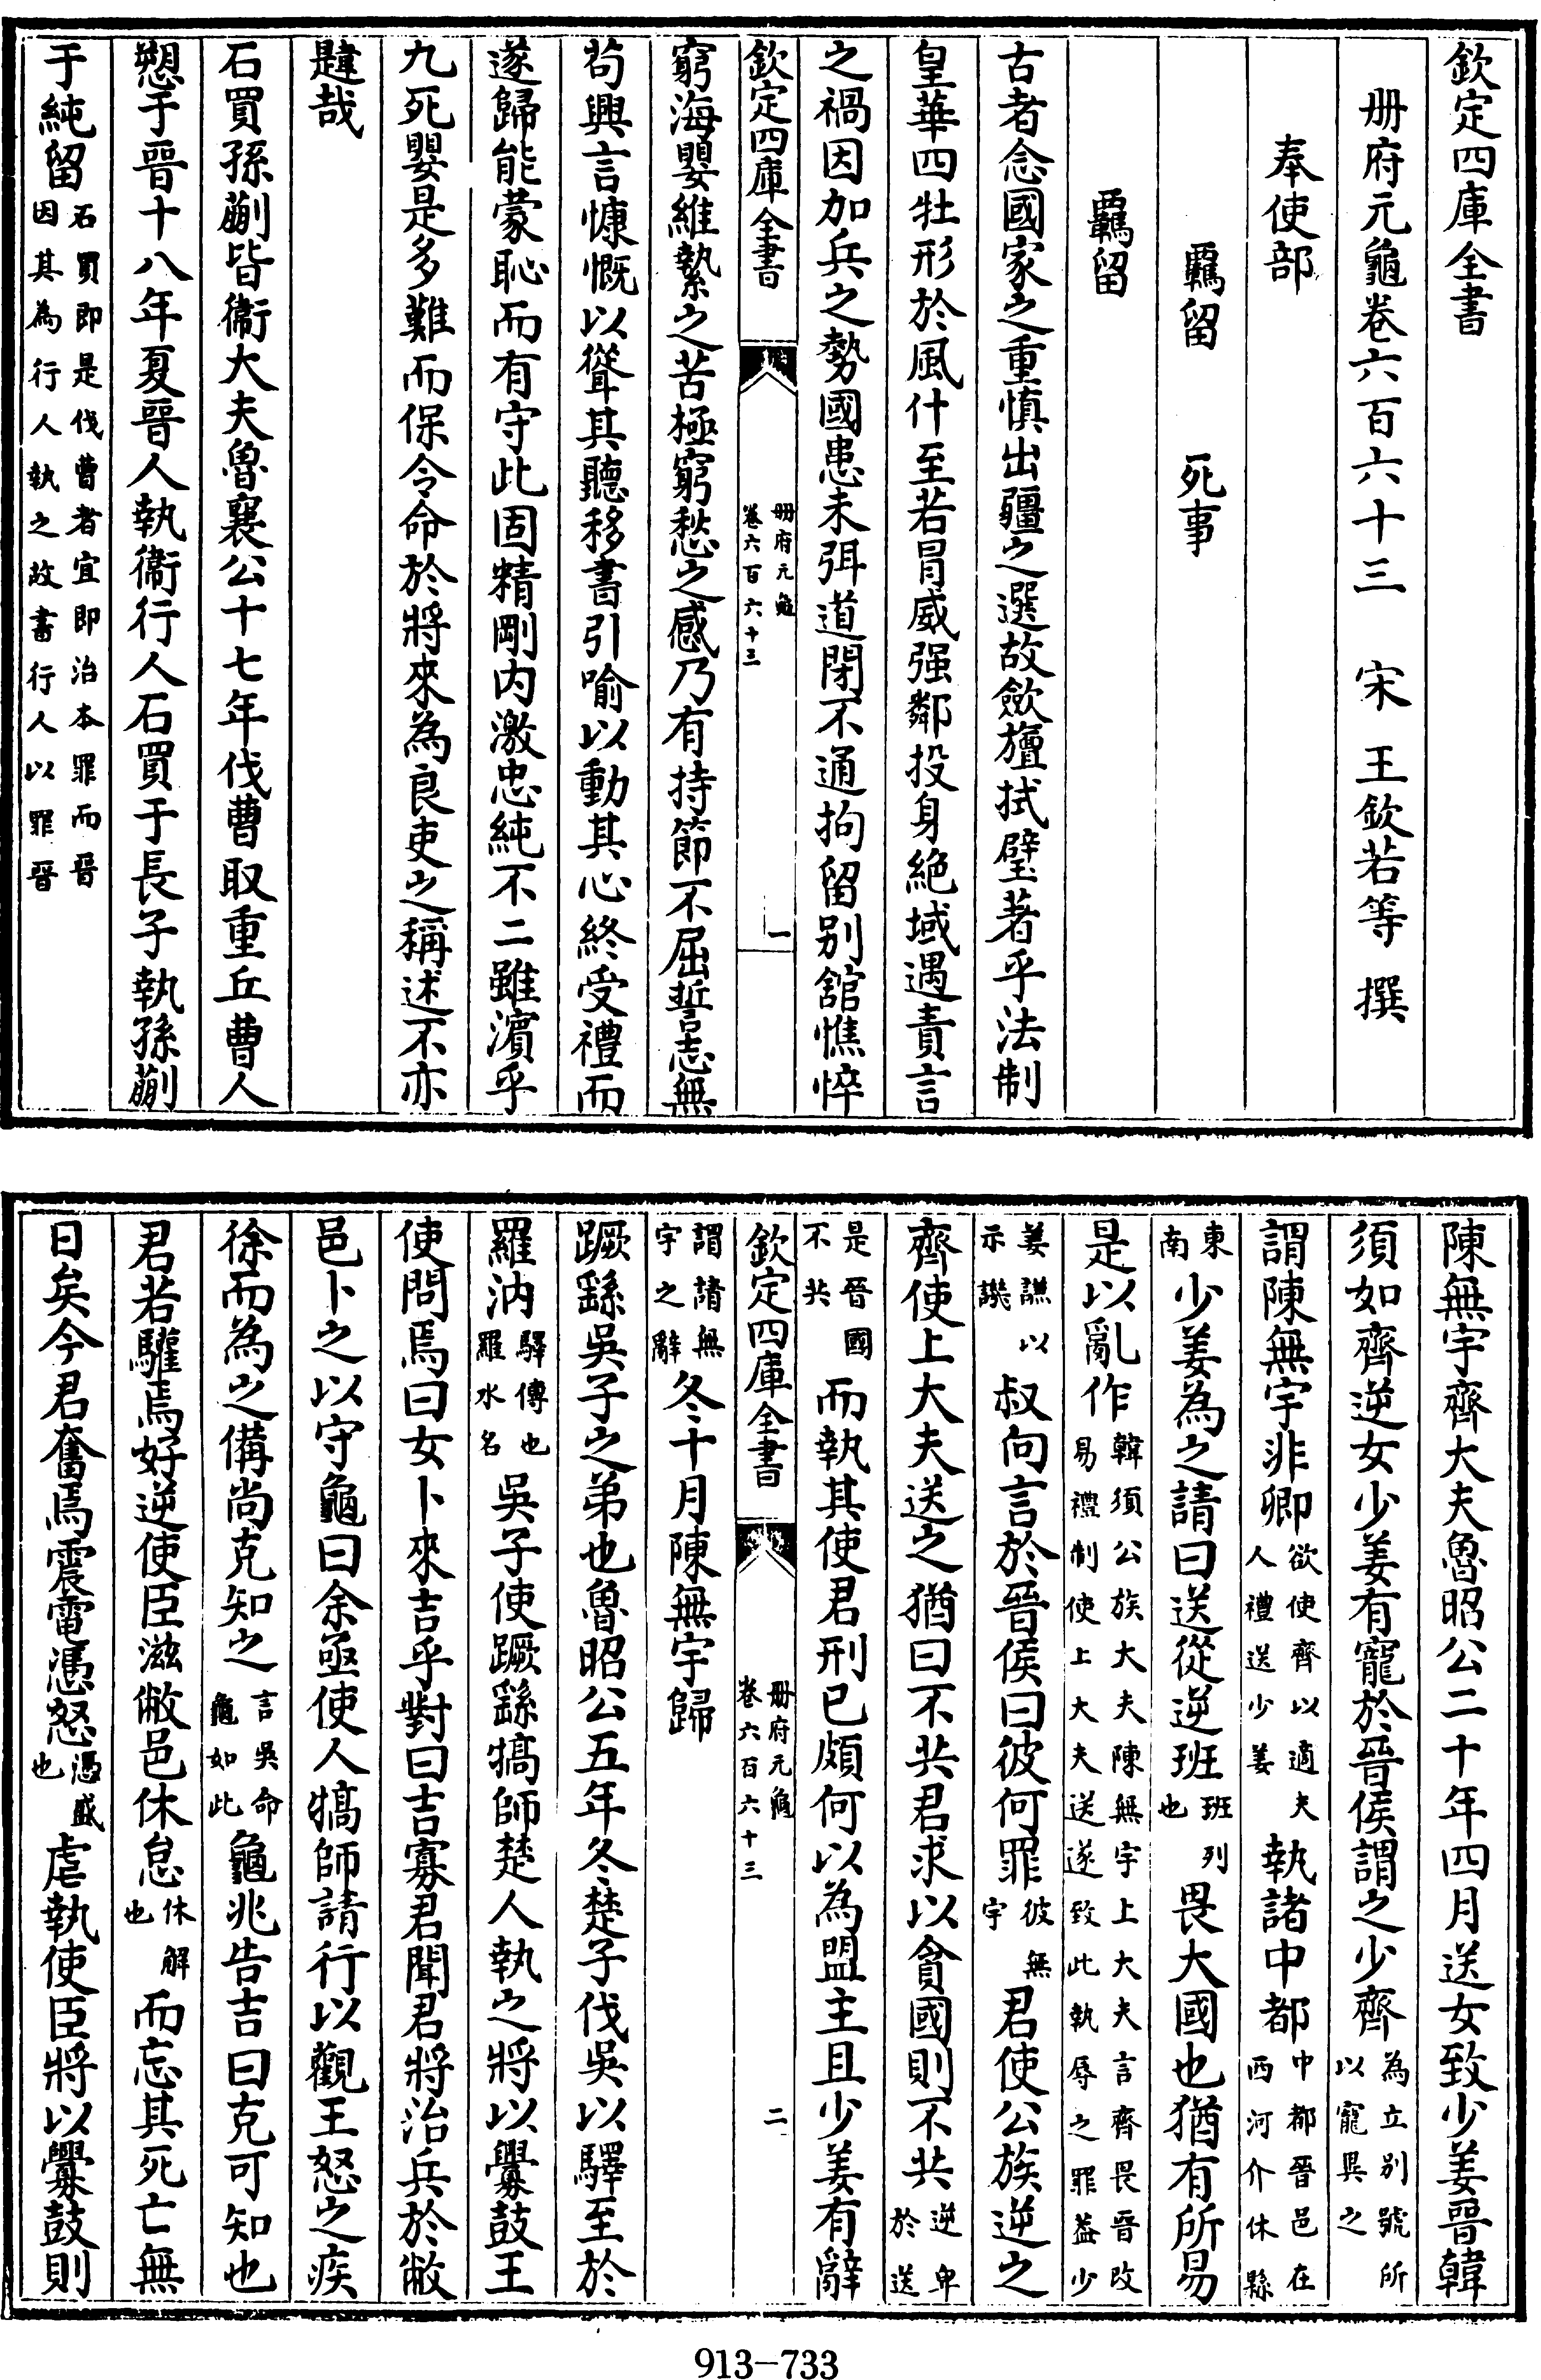 欽定四庫全書
册府元龜卷六百六十三 宋 王欽若等 撰
奉使部
羈留 死事
羈留
古者念國家之重慎出疆之選故歛旜拭璧著乎法制
皇華四牡形於風什至若冒威强鄰投身絶域遇責言
之禍因加兵之勢國患未弭道閉不通拘留别舘憔悴
欽定四庫全書 册府元龜卷六百六十三 一
窮海嬰維縶之苦極窮愁之感乃有持節不屈誓志無
茍興言慷慨以聳其聽移書引喻以動其心終受禮而
遂歸能蒙恥而有守此固精剛内激忠純不二雖濵乎
九死嬰是多難而保令命於將來為良吏之稱述不亦
韙哉
石買孫蒯皆衞大夫魯襄公十七年伐曹取重丘曹人
愬于晉十八年夏晉人執衞行人石買于長子執孫蒯
于純留石買即是伐曹者宜即治本罪而晉因其為行人執之故書行人以罪晉
陳無宇齊大夫魯昭公二十年四月送女致少姜晉韓
須如齊逆女少姜有寵於晉侯謂之少齊為立别號所以寵異之
謂陳無宇非卿欲使齊以適夫人禮送少姜執諸中都中都晉邑在西河介休縣
東南少姜為之請曰送從逆班班列也畏大國也猶有所易
是以亂作韓須公族大夫陳無宇上大夫言齊畏晉改易禮制使上大夫送遂致此執辱之罪葢少
姜謙以示譏叔向言於晉侯曰彼何罪彼無宇君使公族逆之
齊使上大夫送之猶曰不共君求以貪國則不共逆卑於送
是晉國不共而執其使君刑已頗何以為盟主且少姜有辭
欽定四庫全書 册府元龜卷六百六十三 二
謂請無宇之辭冬十月陳無宇歸
蹶繇吳子之弟也魯昭公五年冬楚子伐吳以驛至於
羅汭驛傳也羅水名吳子使蹶繇犒師楚人執之將以釁鼓王
使問焉曰女卜來吉乎對曰吉寡君聞君將治兵於敝
邑卜之以守龜曰余亟使人犒師請行以觀王怒之疾
徐而為之備尚克知之言吳命龜如此龜兆告吉曰克可知也
君若驩焉好逆使臣滋敝邑休怠休解也而忘其死亡無
日矣今君奮焉震電憑怒憑盛也虐執使臣將以釁鼓則
913-733